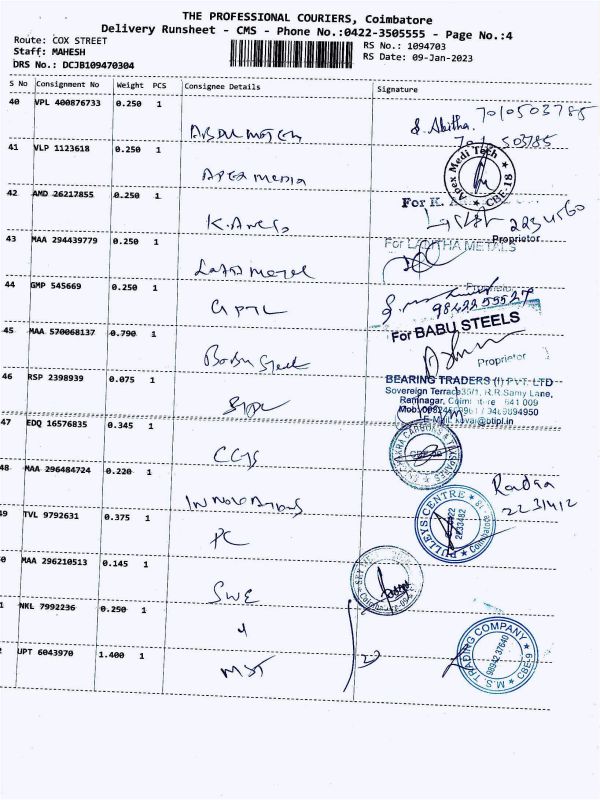 THE PROFESSIONAL COURIERS, Coimbatore
Delivery Runsheet - CMS - Phone No.:0422-3505555 - Page No.:4
Route: COX STREET
Staff: MAHESH
DRS No.: DCJB109470304
RS No.: 1094703
RS Date: 09-Jan-2023
S No Consignment No Weight PCS Consignee Details Signature
40 VPL 400876733 0.250 1
7010503785
S. Abitha.
41 VLP 1123618 0.250 1
APEX MEDIA
Apex Medi Tech
CBE-18
42 AMD 26217855 0.250 1
For K. A
2234560
Proprietor
43 MAA 294439779 0.250 1
For LALITHA METALS
44 GMP 545669 0.250 1
Proprietor
9842255527
45 MAA 570068137 0.790 1
Babu Steel
For BABU STEELS
Proprietor
46 RSP 2398939 0.075 1
BEARING TRADERS (I) PVT. LTD
Sovereign Terrace35/1, R.R.Samy Lane,
Ramnagar, 641 009
47 EDQ 16576835 0.345 1
CCTS
48 MAA 296484724 0.220 1
Innovations
Radha
49 TVL 9792631 0.375 1
PC
PULLEYS CENTRE
2233482
Coimbatore
0 MAA 296210513 0.145 1
SWE
1 NKL 7992236 0.250 1
4
2 UPT 6043970 1.400 1
MST
M.S. TRADING COMPANY
98942 37640
CBE-9